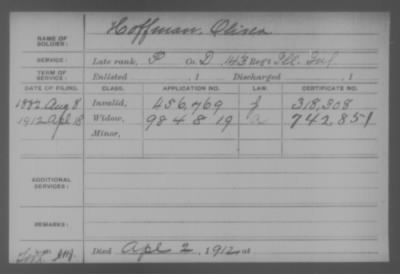 NAME OF SOLDIER: Hoffman, Oliver
SERVICE: Late rank, P Co. D, 43 Reg't Ill. Inf
TERM OF SERVICE: Enlisted , 1 Discharged , 1
DATE OF FILING. CLASS. APPLICATION NO. LAW. CERTIFICATE NO.
1882 Aug 8 Invalid, 456,769 J 318,308
1912 Apl 18 Widow, 984819 a 742,851
Minor,
ADDITIONAL SERVICES:
REMARKS:
Died Apl 2, 1912 at